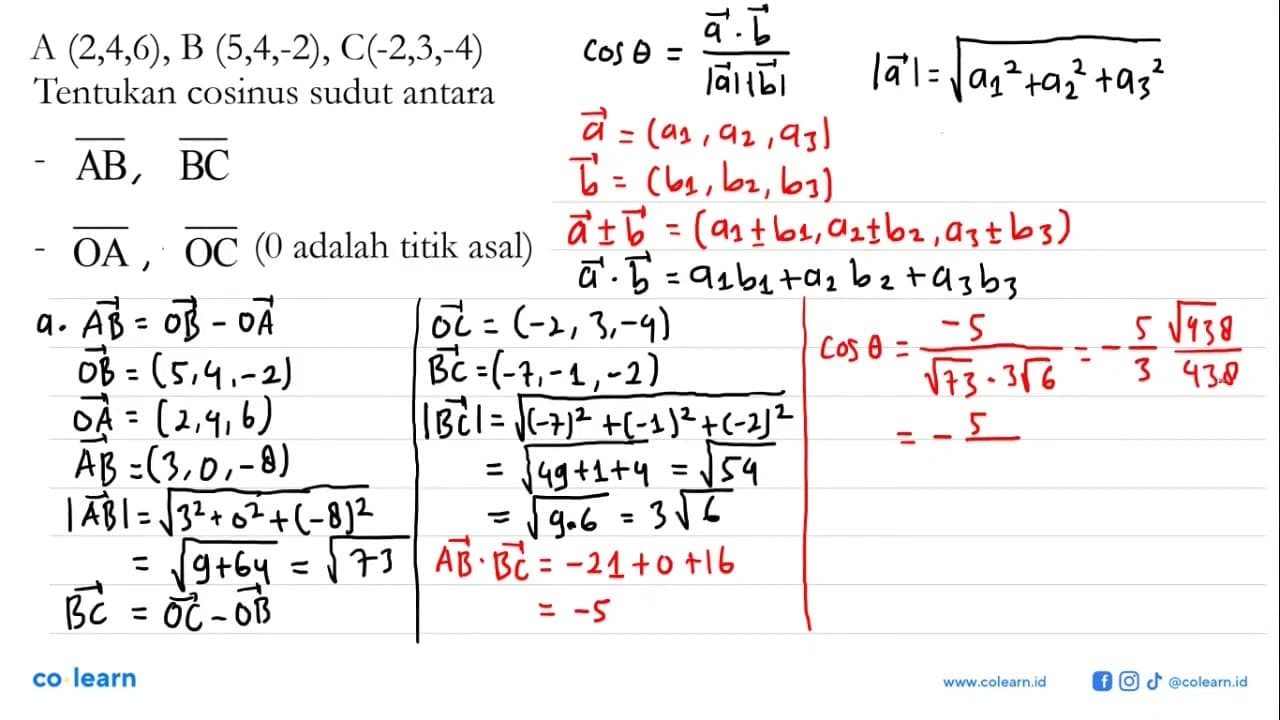 A (2,4,6), B (5,4,-2), C(-2,3,-4)
Tentukan cosinus sudut antara
- AB, BC
- OA, OC (0 adalah titik asal)
cos θ = a⃗ · b⃗ / |a⃗||b⃗|
|a⃗| = √(a₁² + a₂² + a₃²)
a⃗ = (a₁, a₂, a₃)
b⃗ = (b₁, b₂, b₃)
a⃗ ± b⃗ = (a₁ ± b₁, a₂ ± b₂, a₃ ± b₃)
a⃗ · b⃗ = a₁b₁ + a₂b₂ + a₃b₃
a. AB⃗ = OB⃗ - OA⃗
OB⃗ = (5,4,-2)
OA⃗ = (2,4,6)
AB⃗ = (3,0,-8)
|AB⃗| = √(3² + 0² + (-8)²)
= √(9+64) = √73
BC⃗ = OC⃗ - OB⃗
OC⃗ = (-2, 3, -4)
BC⃗ = (-7, -1, -2)
|BC⃗| = √((-7)² + (-1)² + (-2)²)
= √(49+1+4) = √54
= √(9.6) = 3√6
AB⃗ · BC⃗ = -21 + 0 + 16
= -5
cos θ = -5 / √73 · 3√6 = - 5/3 √438/438
= - 5
co learn
www.colearn.id
@colearn.id